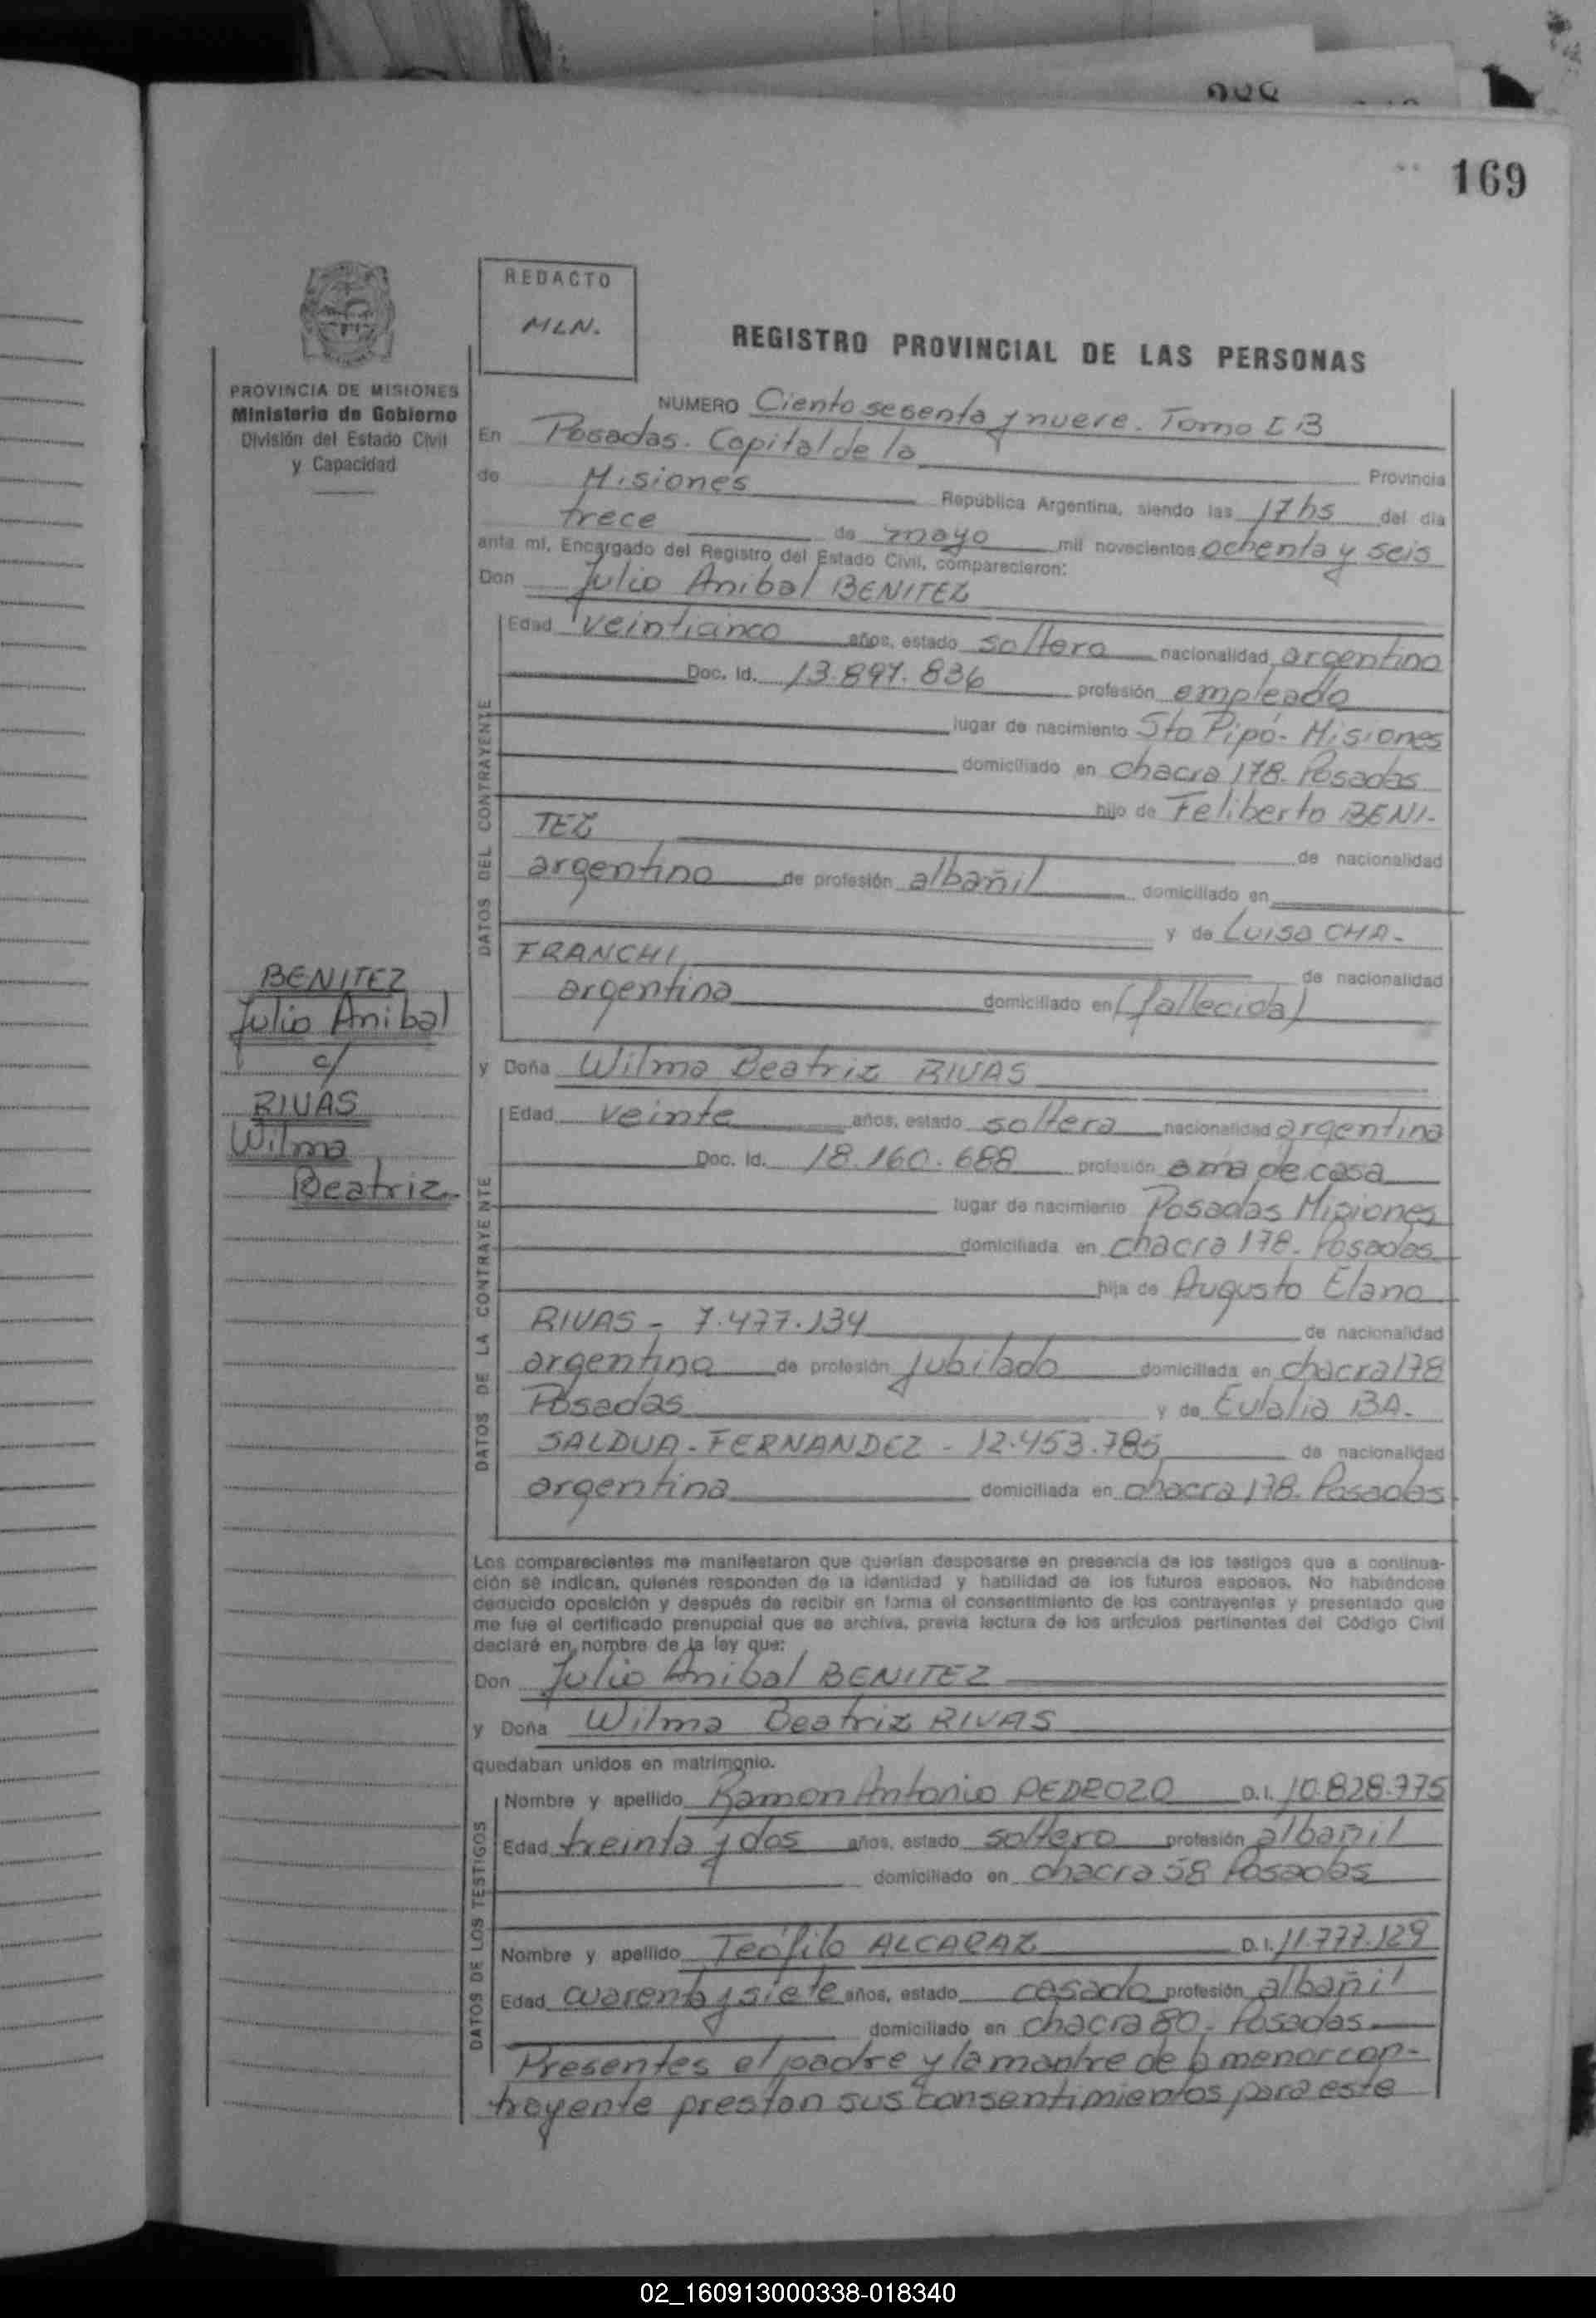 169
REDACTO
MLN.
REGISTRO PROVINCIAL DE LAS PERSONAS
PROVINCIA DE MISIONES
Ministerio de Gobierno
División del Estado Civil
y Capacidad
NUMERO Ciento sesenta y nueve. Tomo I B
En Posadas. Capital de la Provincia
de Misiones República Argentina, siendo las 17hs del día
trece de mayo mil novecientos ochenta y seis
ante mí, Encargado del Registro del Estado Civil, comparecieron:
Don Julio Anibal BENITEZ
DATOS DEL CONTRAYENTE
Edad veinticinco años, estado soltero nacionalidad argentino
Doc. Id. 13.897.836 profesión empleado
lugar de nacimiento Sto Pipó- Misiones
domiciliado en chacra 178. Posadas
hijo de Feliberto BENI-
TEZ de nacionalidad
argentino de profesión albañil domiciliado en
y de Luisa CHA-
FRANCHI de nacionalidad
argentina domiciliado en (fallecida)
BENITEZ
Julio Anibal
c/
RIVAS
Wilma
Beatriz
y Doña Wilma Beatriz RIVAS
DATOS DE LA CONTRAYENTE
Edad veinte años, estado soltera nacionalidad argentina
Doc. Id. 18.160.688 profesión ama de casa
lugar de nacimiento Posadas Misiones
domiciliada en chacra 178. Posadas
hija de Augusto Elano
RIVAS - 7.477.134 de nacionalidad
argentino de profesión jubilado domiciliada en chacra 178
Posadas y de Eulalia BA-
SALDUA-FERNANDEZ - 12.453.785 de nacionalidad
argentina domiciliada en chacra 178. Posadas
Los comparecientes me manifestaron que querían desposarse en presencia de los testigos que a continua-
ción se indican, quienes responden de la identidad y habilidad de los futuros esposos. No habiéndose
deducido oposición y después de recibir en forma el consentimiento de los contrayentes y presentado que
me fue el certificado prenupcial que se archiva, previa lectura de los artículos pertinentes del Código Civil
declaré en nombre de la ley que:
Don Julio Anibal BENITEZ
y Doña Wilma Beatriz RIVAS
quedaban unidos en matrimonio.
DATOS DE LOS TESTIGOS
Nombre y apellido Ramon Antonio PEDROZO D.I. 10.828.775
Edad treinta y dos años, estado soltero profesión albañil
domiciliado en chacra 58 Posadas
Nombre y apellido Teófilo ALCARAZ D.I. 11.777.129
Edad cuarenta y siete años, estado casado profesión albañil
domiciliado en chacra 80- Posadas
Presentes el padre y la madre de la menor con-
trayente prestan sus consentimientos para este
02_160913000338-018340